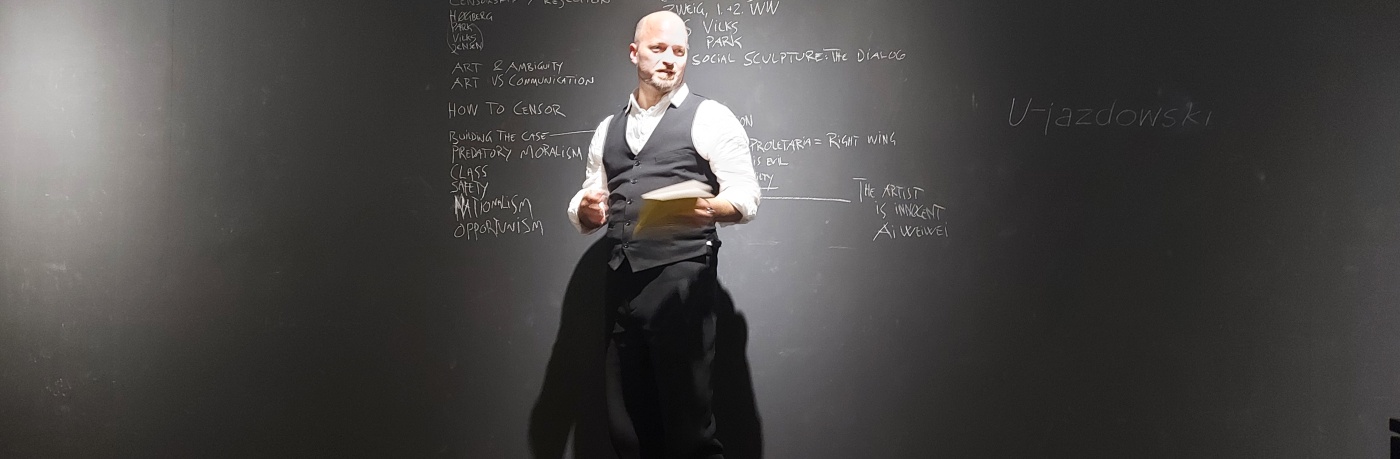 CENSORSHIP / REJECTION
HØGBERG
PARK
VILKS
JENSEN
ART & AMBIGUITY
ART VS COMMUNICATION
HOW TO CENSOR
BUILDING THE CASE
PREDATORY MORALISM
CLASS
SAFETY
NATIONALISM
OPPORTUNISM
ZWEIG, 1.+2. WW
VILKS
PARK
SOCIAL SCULPTURE: THE DIALOG
PROLETARIA = RIGHT WING
IS EVIL
THE ARTIST
IS INNOCENT
AI WEIWEI
U-jazdowski